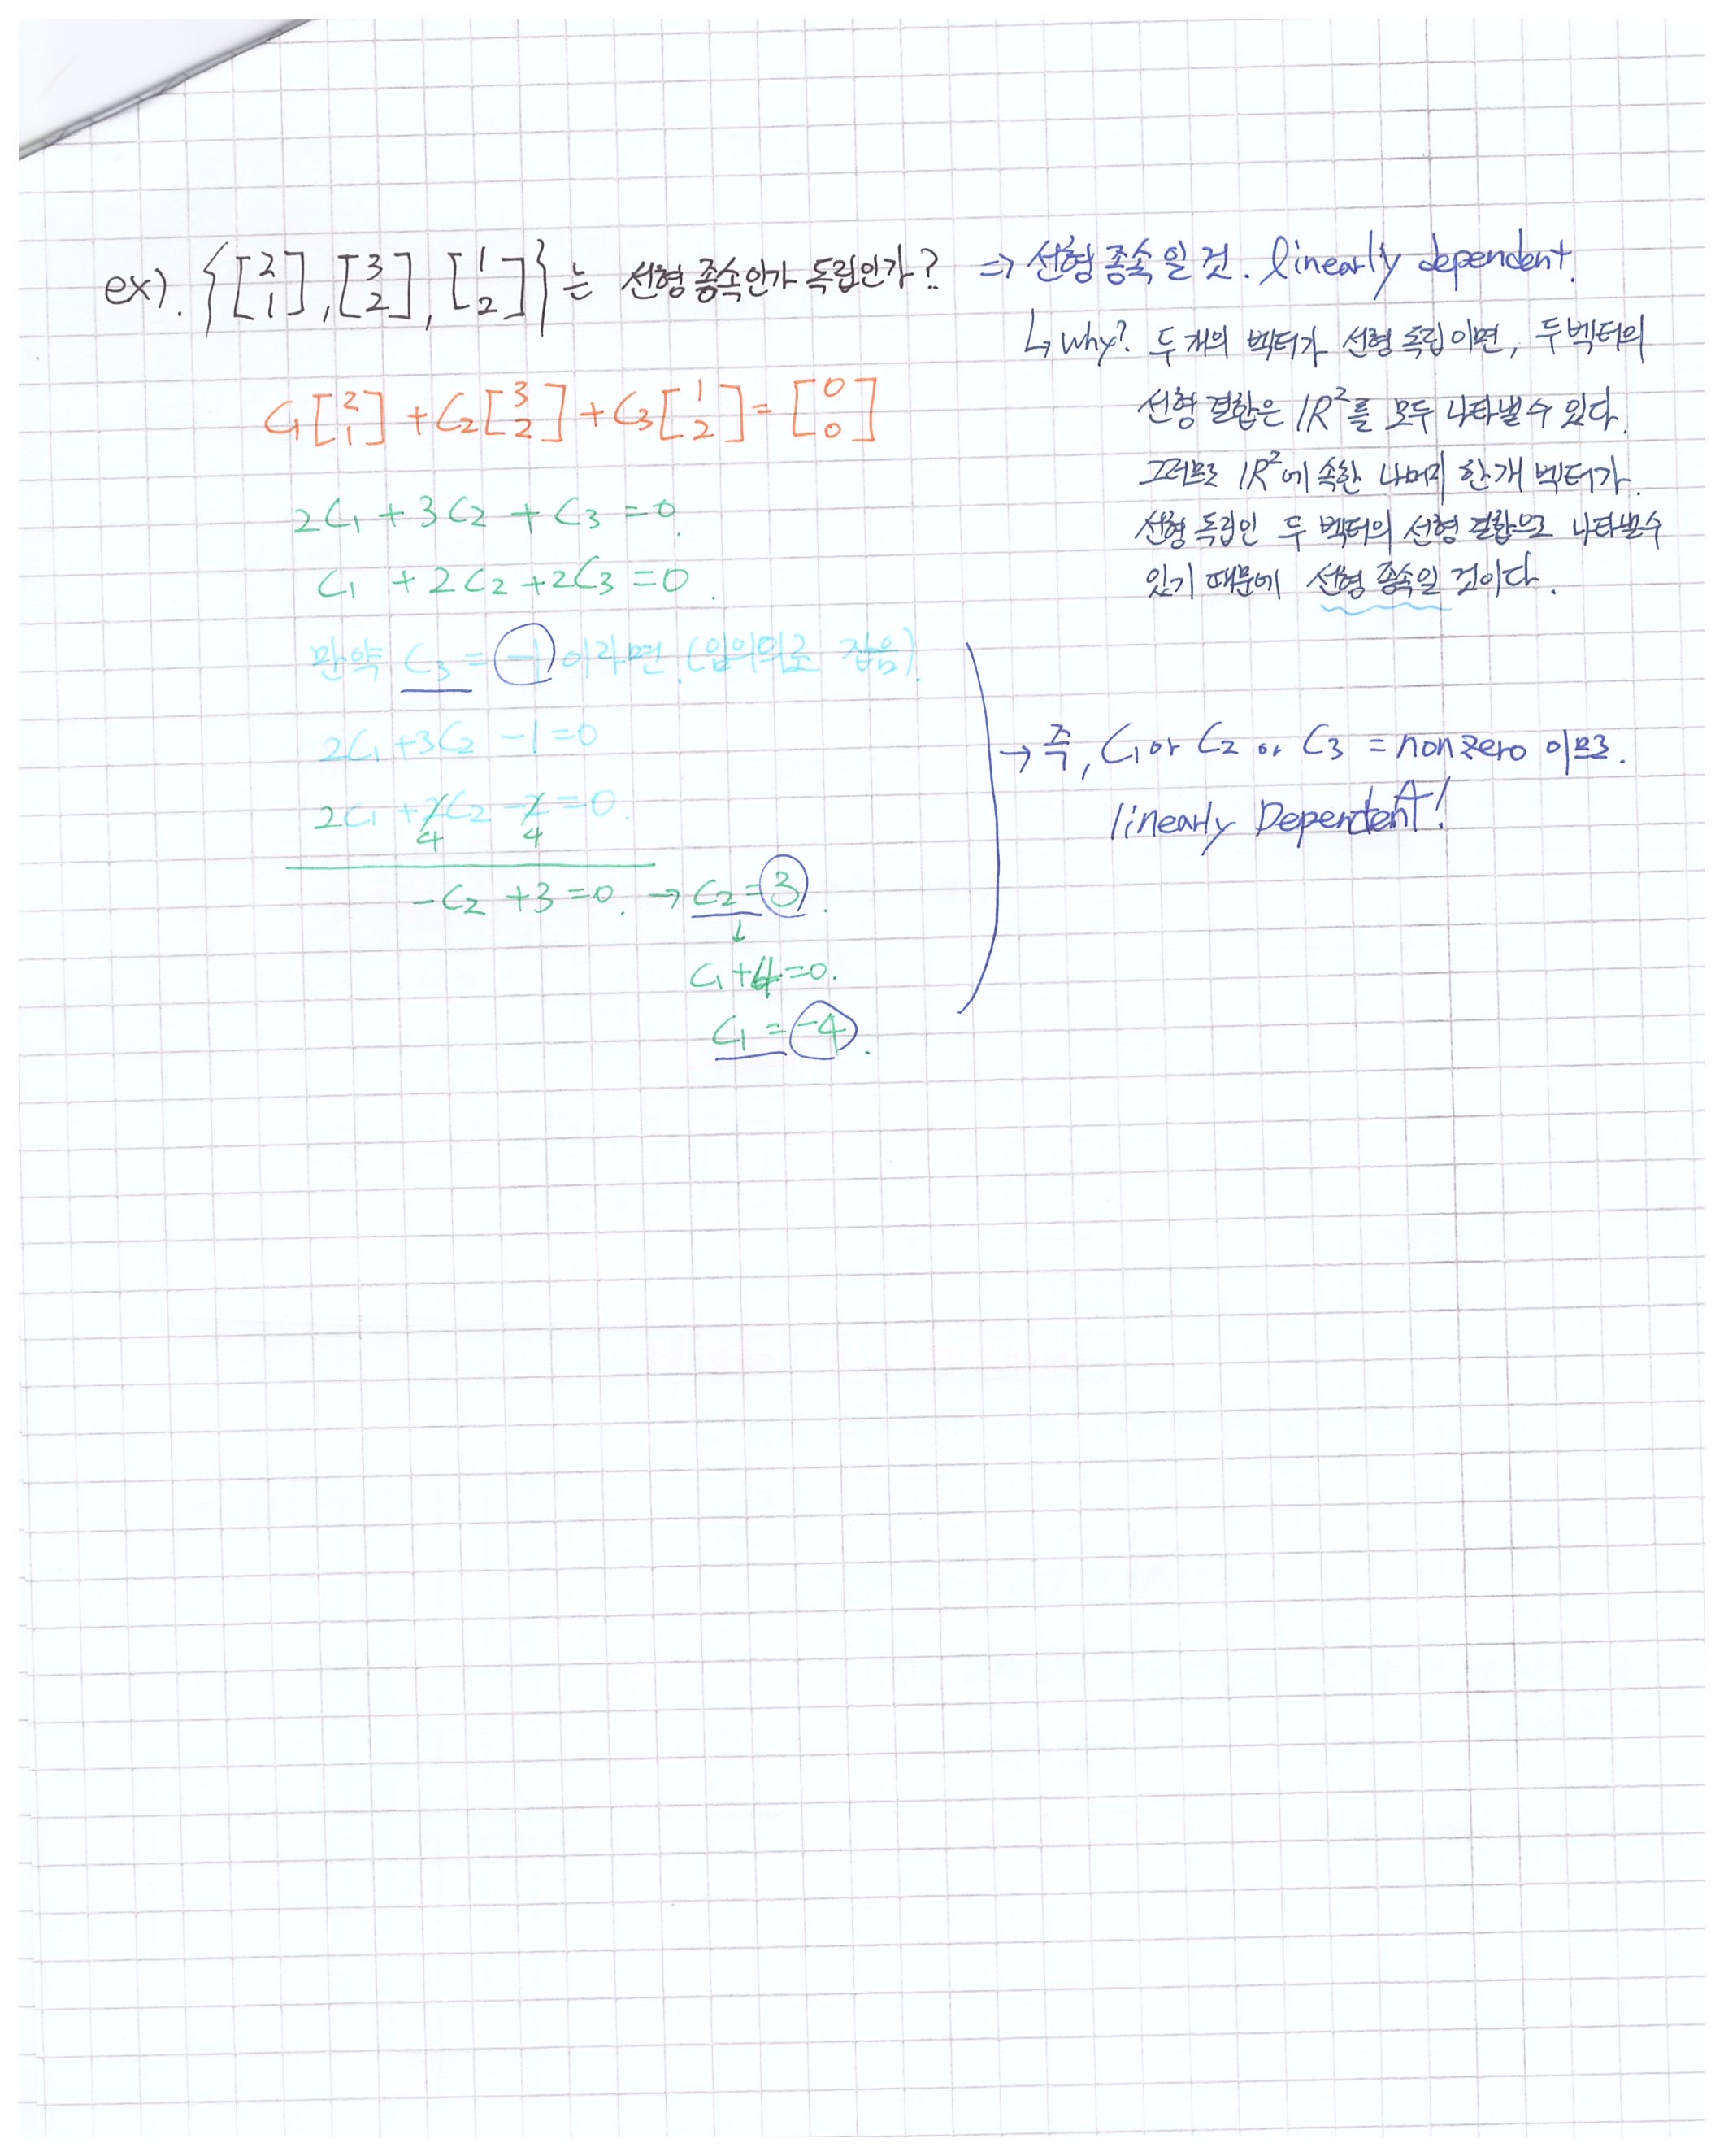 ex). {[2 1], [3 2], [1 2]}는 선형 종속인가 독립인가? ⇒ 선형 종속일 것. linearly dependent.
↳ why? 두 개의 벡터가 선형 독립이면, 두 벡터의
선형 결합은 ℝ²를 모두 나타낼 수 있다.
그러므로 ℝ²에 속한 나머지 한 개 벡터가
선형 독립인 두 벡터의 선형 결합으로 나타낼 수
있기 때문에 선형 종속일 것이다.
C₁[2 1] + C₂[3 2] + C₃[1 2] = [0 0]
2C₁ + 3C₂ + C₃ = 0.
C₁ + 2C₂ + 2C₃ = 0.
만약 C₃ = -1 이라면 (임의로 잡음).
2C₁ + 3C₂ - 1 = 0
2C₁ + 4C₂ - 4 = 0.
-C₂ + 3 = 0. → C₂ = 3.
↓
C₁ + 4 = 0.
C₁ = -4.
→ 즉, C₁ or C₂ or C₃ = nonzero 이므로.
linearly Dependent!